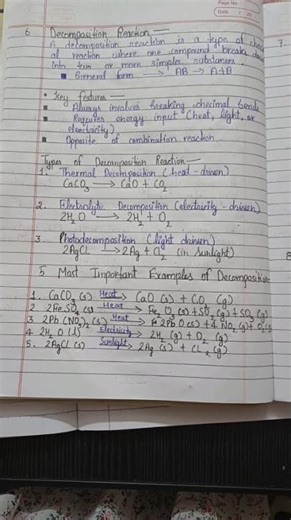 Page No.
Date
6 Decomposition Reaction —
A decomposition reaction is a type of chemic
al reaction where one compound breaks down
into two or more simpler substances.
▪ General form → AB → A+B
• Key features —
▪ Always involves breaking checimal bonds
▪ Requires energy input (heat, light, or
electricity)
▪ Opposite of combination reaction
Types of Decomposition Reaction —
1. Thermal Decomposition (heat-driven)
CaCO3 → CaO + CO2
2. Electrolytic Decomposition (electricity-driven)
2H2O → 2H2 + O2
3 Photodecomposition (light driven)
2AgCl → 2Ag + Cl2 (in sunlight)
5 Most Important Examples of Decomposition
1. CaCO3 (s) Heat→ CaO (s) + CO2 (g)
2. 2FeSO4 (s) Heat→ Fe2O3 (s) + SO2 (g) + SO3 (g)
3 2Pb(NO3)2 (s) Heat→ 2PbO (s) + 4NO2 (g) + O2 (g)
4. 2H2O (l) Electricity→ 2H2 (g) + O2 (g)
5. 2AgCl (s) Sunlight→ 2Ag (s) + Cl2 (g)
7.
8